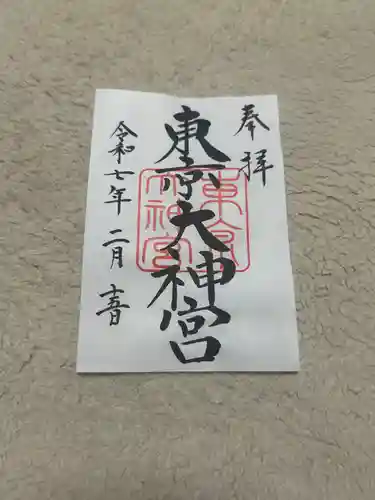 奉拝
東京大神宮
東京大神宮
令和七年二月十一日